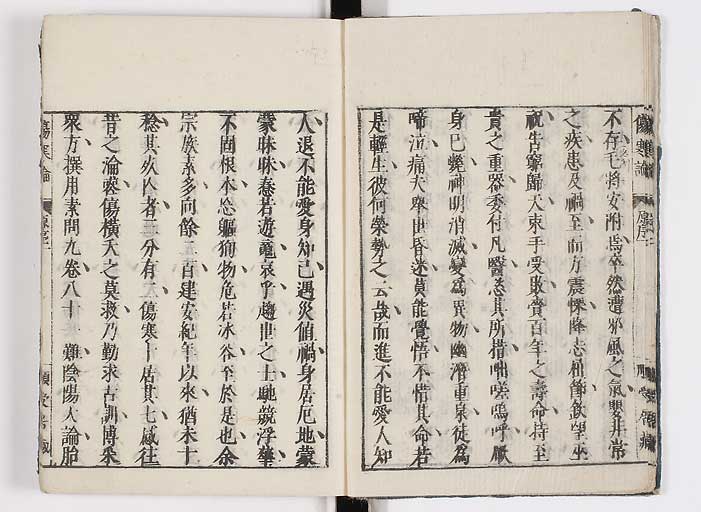 不存毛將安附焉卒然遭邪風之氣嬰非常
之疾患及禍至而方震慄降志屈節欽望巫
祝告窮歸天束手受敗賫百年之壽命持至
貴之重器委付凡醫恣其所措咄嗟嗚呼厥
身已斃神明消滅變爲異物幽潛重泉徒爲
啼泣痛夫舉世昏迷莫能覺悟不惜其命若
是輕生彼何榮勢之云哉而進不能愛人知
人退不能愛身知己遇災值禍身居厄地蒙
蒙昧昧惷若遊魂哀乎趨世之士馳競浮華
不固根本忘軀狥物危若冰谷至於是也余
宗族素多向餘二百建安紀年以來猶未十
稔其死亡者三分有二傷寒十居其七感往
昔之淪喪傷橫夭之莫救乃勤求古訓博采
衆方撰用素問九卷八十一難陰陽大論胎
傷寒論
傷寒論